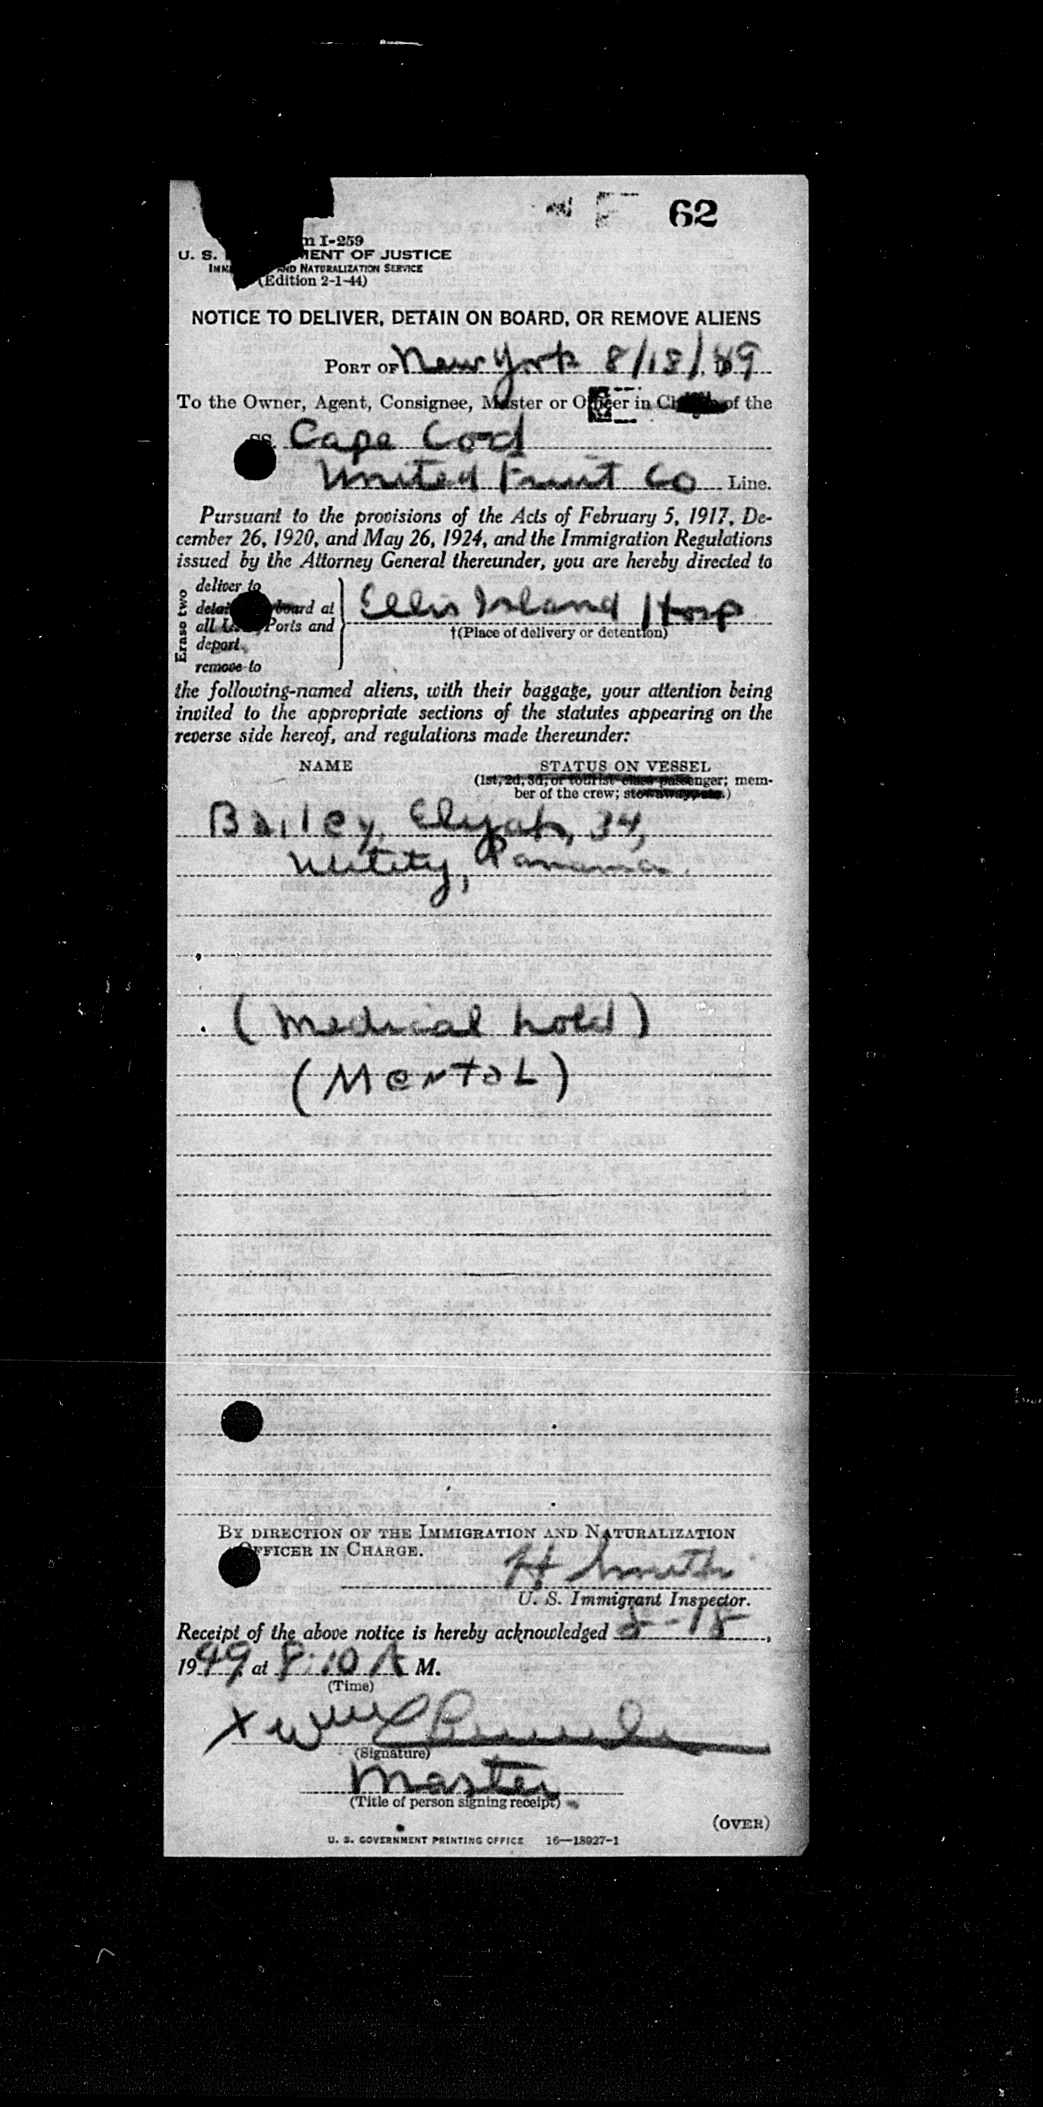 62
m I-259
U. S. MENT OF JUSTICE
AND NATURALIZATION SERVICE
(Edition 2-1-44)
NOTICE TO DELIVER, DETAIN ON BOARD, OR REMOVE ALIENS
PORT OF New York 8/18/49
To the Owner, Agent, Consignee, Master or Officer in Charge of the
SS. Cape Cod
United Fruit Co Line.
Pursuant to the provisions of the Acts of February 5, 1917, De-
cember 26, 1920, and May 26, 1924, and the Immigration Regulations
issued by the Attorney General thereunder, you are hereby directed to
Erase two
deliver to
detain on board at
all U.S. Ports and
deport
remove to
Ellis Island Hosp
†(Place of delivery or detention)
the following-named aliens, with their baggage, your attention being
invited to the appropriate sections of the statutes appearing on the
reverse side hereof, and regulations made thereunder:
NAME STATUS ON VESSEL
(1st, 2d, 3d, or tourist class passenger; mem-
ber of the crew; stowaway, etc.)
Bailey, Elijah, 34,
Utility, Panama.
(Medical hold)
(Mental)
BY DIRECTION OF THE IMMIGRATION AND NATURALIZATION
OFFICER IN CHARGE.
H Smith
U. S. Immigrant Inspector.
Receipt of the above notice is hereby acknowledged 8-18,
1949 at 8:10 A M.
(Time)
X
(Signature)
Master
(Title of person signing receipt)
(OVER)
U. S. GOVERNMENT PRINTING OFFICE 16—18927-1